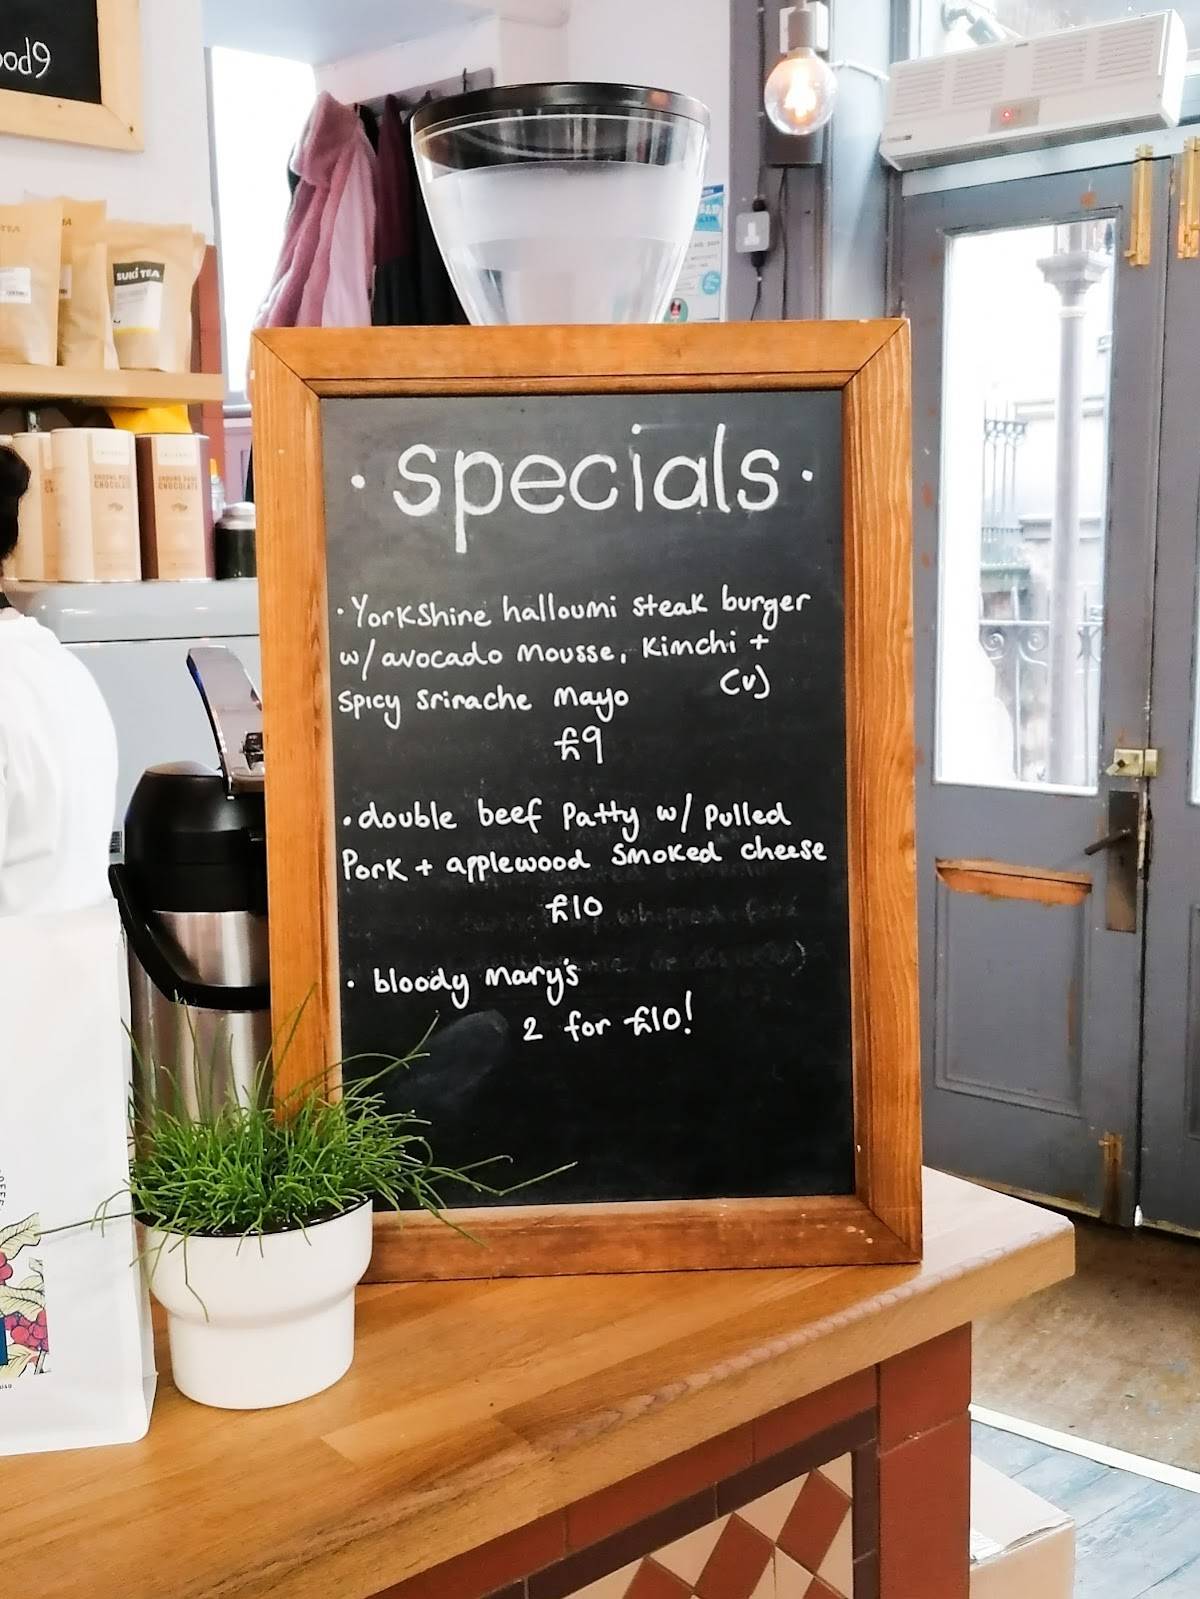 ood9
SUKI TEA
GROUND
CHOCOLATE
CHOCOLATE
• specials •
• Yorkshire halloumi steak burger
w/ avocado mousse, kimchi +
spicy srirache mayo (v)
£9
• double beef patty w/ pulled
pork + applewood smoked cheese
£10
• bloody mary's
2 for £10!